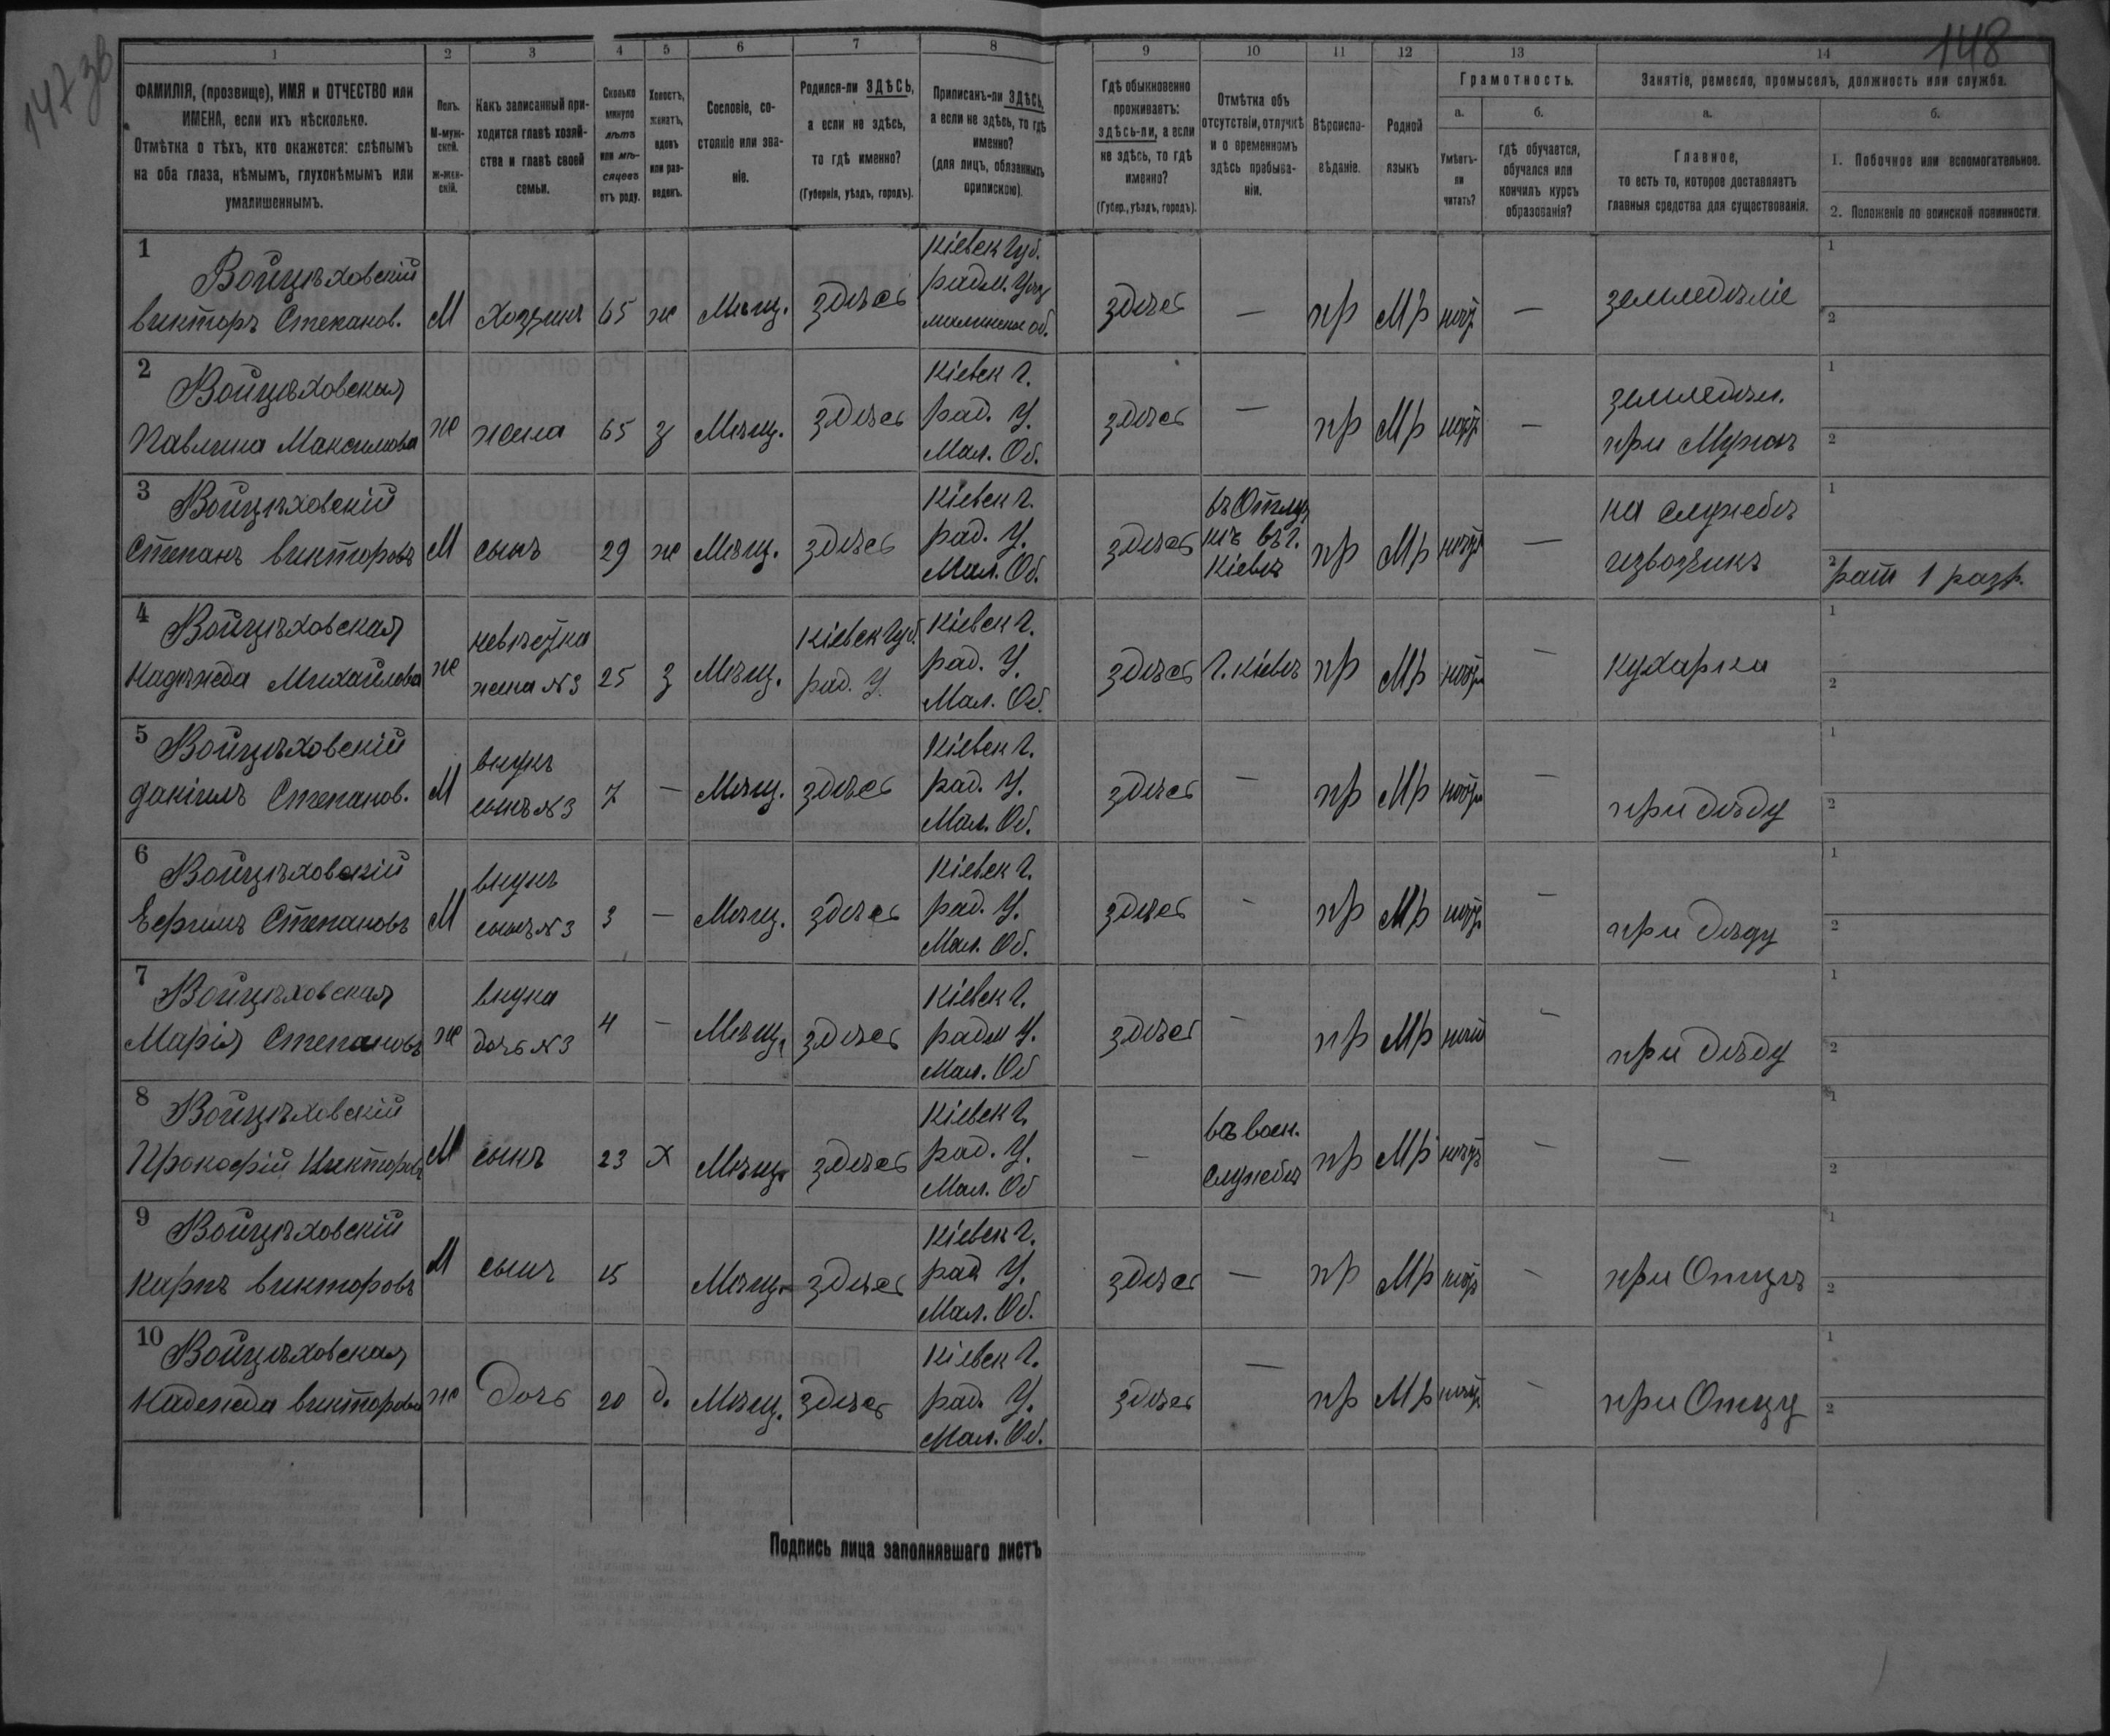 147 зв
148
1 2 3 4 5 6 7 8 9 10 11 12 13 14
ФАМИЛІЯ, (прозвище), ИМЯ и ОТЧЕСТВО или
ИМЕНА, если ихъ нѣсколько.
Отмѣтка о тѣхъ, кто окажется: слѣпымъ
на оба глаза, нѣмымъ, глухонѣмымъ или
умалишеннымъ.
Полъ.
М-муж-
ской.
Ж-жен-
скій.
Какъ записанный при-
ходится главѣ хозяй-
ства и главѣ своей
семьи.
Сколько
минуло
лѣтъ
или мѣ-
сяцевъ
отъ роду.
Холостъ,
женатъ,
вдовъ
или раз-
веденъ.
Сословіе, со-
стояніе или зва-
ніе.
Родился-ли ЗДѢСЬ,
а если не здѣсь,
то гдѣ именно?
(Губернія, уѣздъ, городъ).
Приписанъ-ли ЗДѢСЬ,
а если не здѣсь, то гдѣ
именно?
(для лицъ, обязанныхъ
припискою).
Гдѣ обыкновенно
проживаетъ:
здѣсь-ли, а если
не здѣсь, то гдѣ
именно?
(Губер., уѣздъ, городъ).
Отмѣтка объ
отсутствіи, отлучкѣ
и о временномъ
здѣсь пребыва-
ніи.
Вѣроиспо-
вѣданіе.
Родной
языкъ
Грамотность.
а.
Умѣетъ-
ли
читать?
б.
гдѣ обучается,
обучался или
кончилъ курсъ
образованія?
Занятіе, ремесло, промыселъ, должность или служба.
а.
Главное,
то есть то, которое доставляетъ
главныя средства для существованія.
б.
1. Побочное или вспомогательное.
2. Положеніе по воинской повинности.
1
Войцѣховскій
Викторъ Степанов.
М
Хозяинъ
65
ж
Мѣщ.
здѣсь
Кіевск Губ.
радм. Уѣз
малинское об.
здѣсь
—
пр
Мр
—
земледѣліе
1
2
2
Войцѣховская
Павлина Максимова
ж
жена
65
з
Мѣщ.
здѣсь
Кіевск г.
рад. У.
Мал. Об.
здѣсь
—
пр
Мр
—
земледѣл.
при Мужѣ
1
2
3
Войцѣховскій
Степанъ Викторовъ
М
сынъ
29
ж
Мѣщ.
здѣсь
Кіевск г.
рад. У.
Мал. Об.
здѣсь
въ Отлуч
кѣ въ г.
Кіевѣ
пр
Мр
—
на службѣ
извозчикъ
1
2
рат 1 разр.
4
Войцѣховская
Надежда Михайлова
ж
невѣстка
жена №3
25
з
Мѣщ.
Кіевск Губ.
рад. У.
Кіевск г.
рад. У.
Мал. Об.
здѣсь
Г. Кіевъ
пр
Мр
—
кухарка
1
2
5
Войцѣховскій
Даніилъ Степанов.
М
внукъ
сынъ №3
7
—
Мѣщ.
здѣсь
Кіевск г.
рад. У.
Мал. Об.
здѣсь
—
пр
Мр
—
при дѣду
1
2
6
Войцѣховскій
Ефимъ Степановъ
М
внукъ
сынъ №3
3
—
Мѣщ.
здѣсь
Кіевск г.
рад. У.
Мал. Об.
здѣсь
-
пр
Мр
—
при дѣду
1
2
7
Войцѣховская
Марія Степановъ
ж
внука
дочь №3
4
—
Мѣщ.
здѣсь
Кіевск г.
радм У.
Мал. Об
здѣсь
-
пр
Мр
—
при дѣду
1
2
8
Войцѣховскій
Прокофій Викторовъ
М
сынъ
23
х
Мѣщ.
здѣсь
Кіевск г.
рад. У.
Мал. Об
-
въ воен.
службѣ
пр
Мр
—
—
1
2
9
Войцѣховскій
Карпъ Викторовъ
М
сынъ
15
Мѣщ.
здѣсь
Кіевск г.
рад У.
Мал. Об.
здѣсь
—
пр
Мр
-
при Отцѣ
1
2
10
Войцѣховская
Надежда Викторова
ж
дочь
20
д.
Мѣщ.
здѣсь
Кіевск г.
рад. У.
Мал. Об.
здѣсь
—
пр
Мр
-
при Отцу
1
2
Подпись лица заполнявшаго листъ